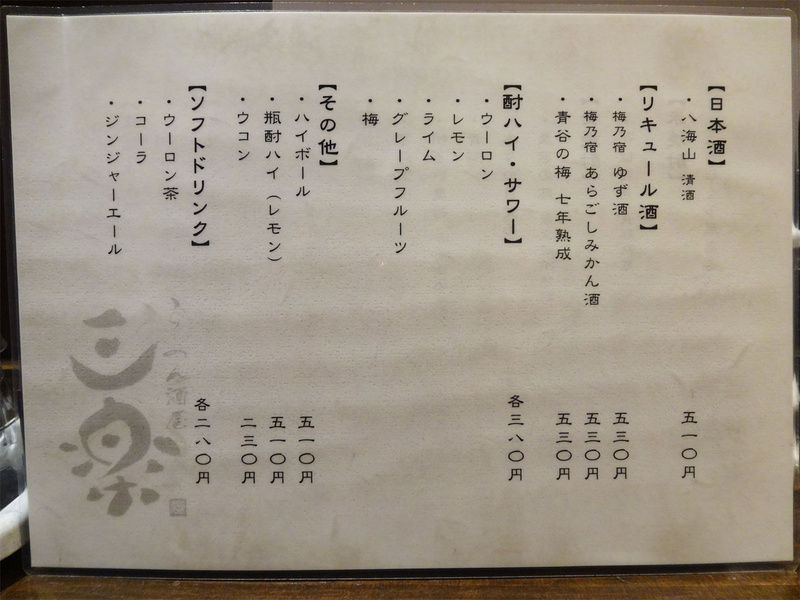 【日本酒】
・八海山 清酒 五一〇円
【リキュール酒】
・梅乃宿 ゆず酒 五三〇円
・梅乃宿 あらごしみかん酒 五三〇円
・青谷の梅 七年熟成 五三〇円
【酎ハイ・サワー】 各三八〇円
・ウーロン
・レモン
・ライム
・グレープフルーツ
・梅
【その他】
・ハイボール 五一〇円
・瓶酎ハイ（レモン） 五一〇円
・ウコン 二三〇円
【ソフトドリンク】 各二八〇円
・ウーロン茶
・コーラ
・ジンジャーエール
三楽